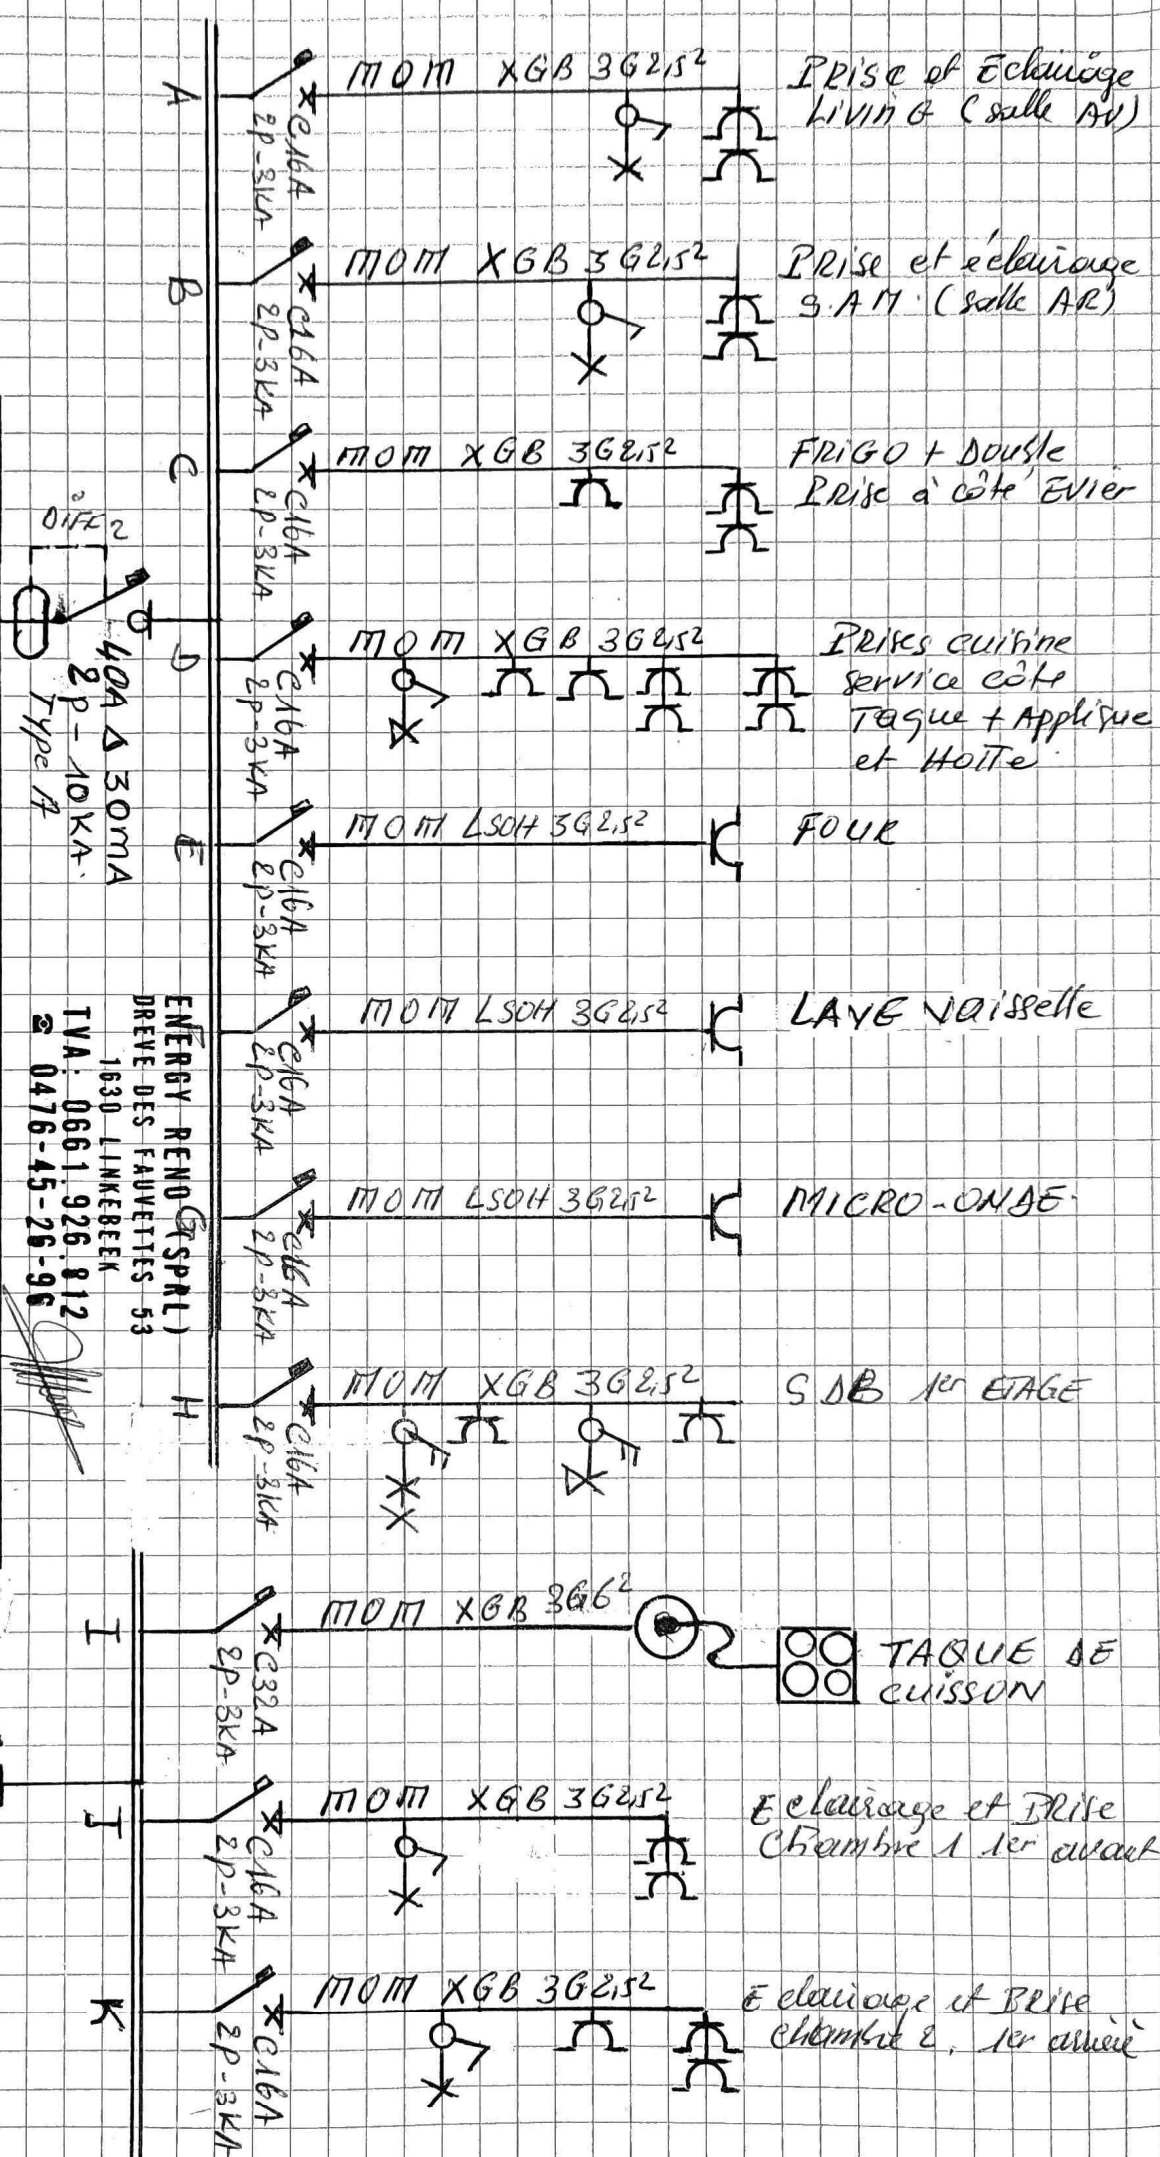 A
C16A
2P-3KA
MOM XGB 3G2,5²
PRISE et Eclairage
LIVING (salle AV)
B
C16A
2P-3KA
MOM XGB 3G2,5²
PRISE et éclairage
S.A.M. (salle AR)
C
C16A
2P-3KA
MOM XGB 3G2,5²
FRIGO + DOUBLE
PRISE à côté EVIER
DIFF 2
40A Δ 30mA
2P-10KA.
Type A
D
C16A
2P-3KA
MOM XGB 3G2,5²
PRISES cuisine
service côté
Taque + Applique
et HOTTE
E
C16A
2P-3KA
MOM LSOH 3G2,5²
FOUR
C16A
2P-3KA
MOM LSOH 3G2,5²
LAVE VAISSELLE
G
C16A
2P-3KA
MOM LSOH 3G2,5²
MICRO-ONDE
ENERGY RENO (SPRL)
DREVE DES FAUVETTES 53
1630 LINKEBEEK
TVA: 0661.926.812
☎ 0476-45-26-96
H
C16A
2P-3KA
MOM XGB 3G2,5²
SDB 1er ETAGE
I
C32A
2P-3KA
MOM XGB 3G6²
TAQUE DE
CUISSON
J
C16A
2P-3KA
MOM XGB 3G2,5²
Eclairage et PRISE
Chambre 1 1er avant
K
C16A
2P-3KA
MOM XGB 3G2,5²
Eclairage et PRISE
Chambre 2, 1er arrière